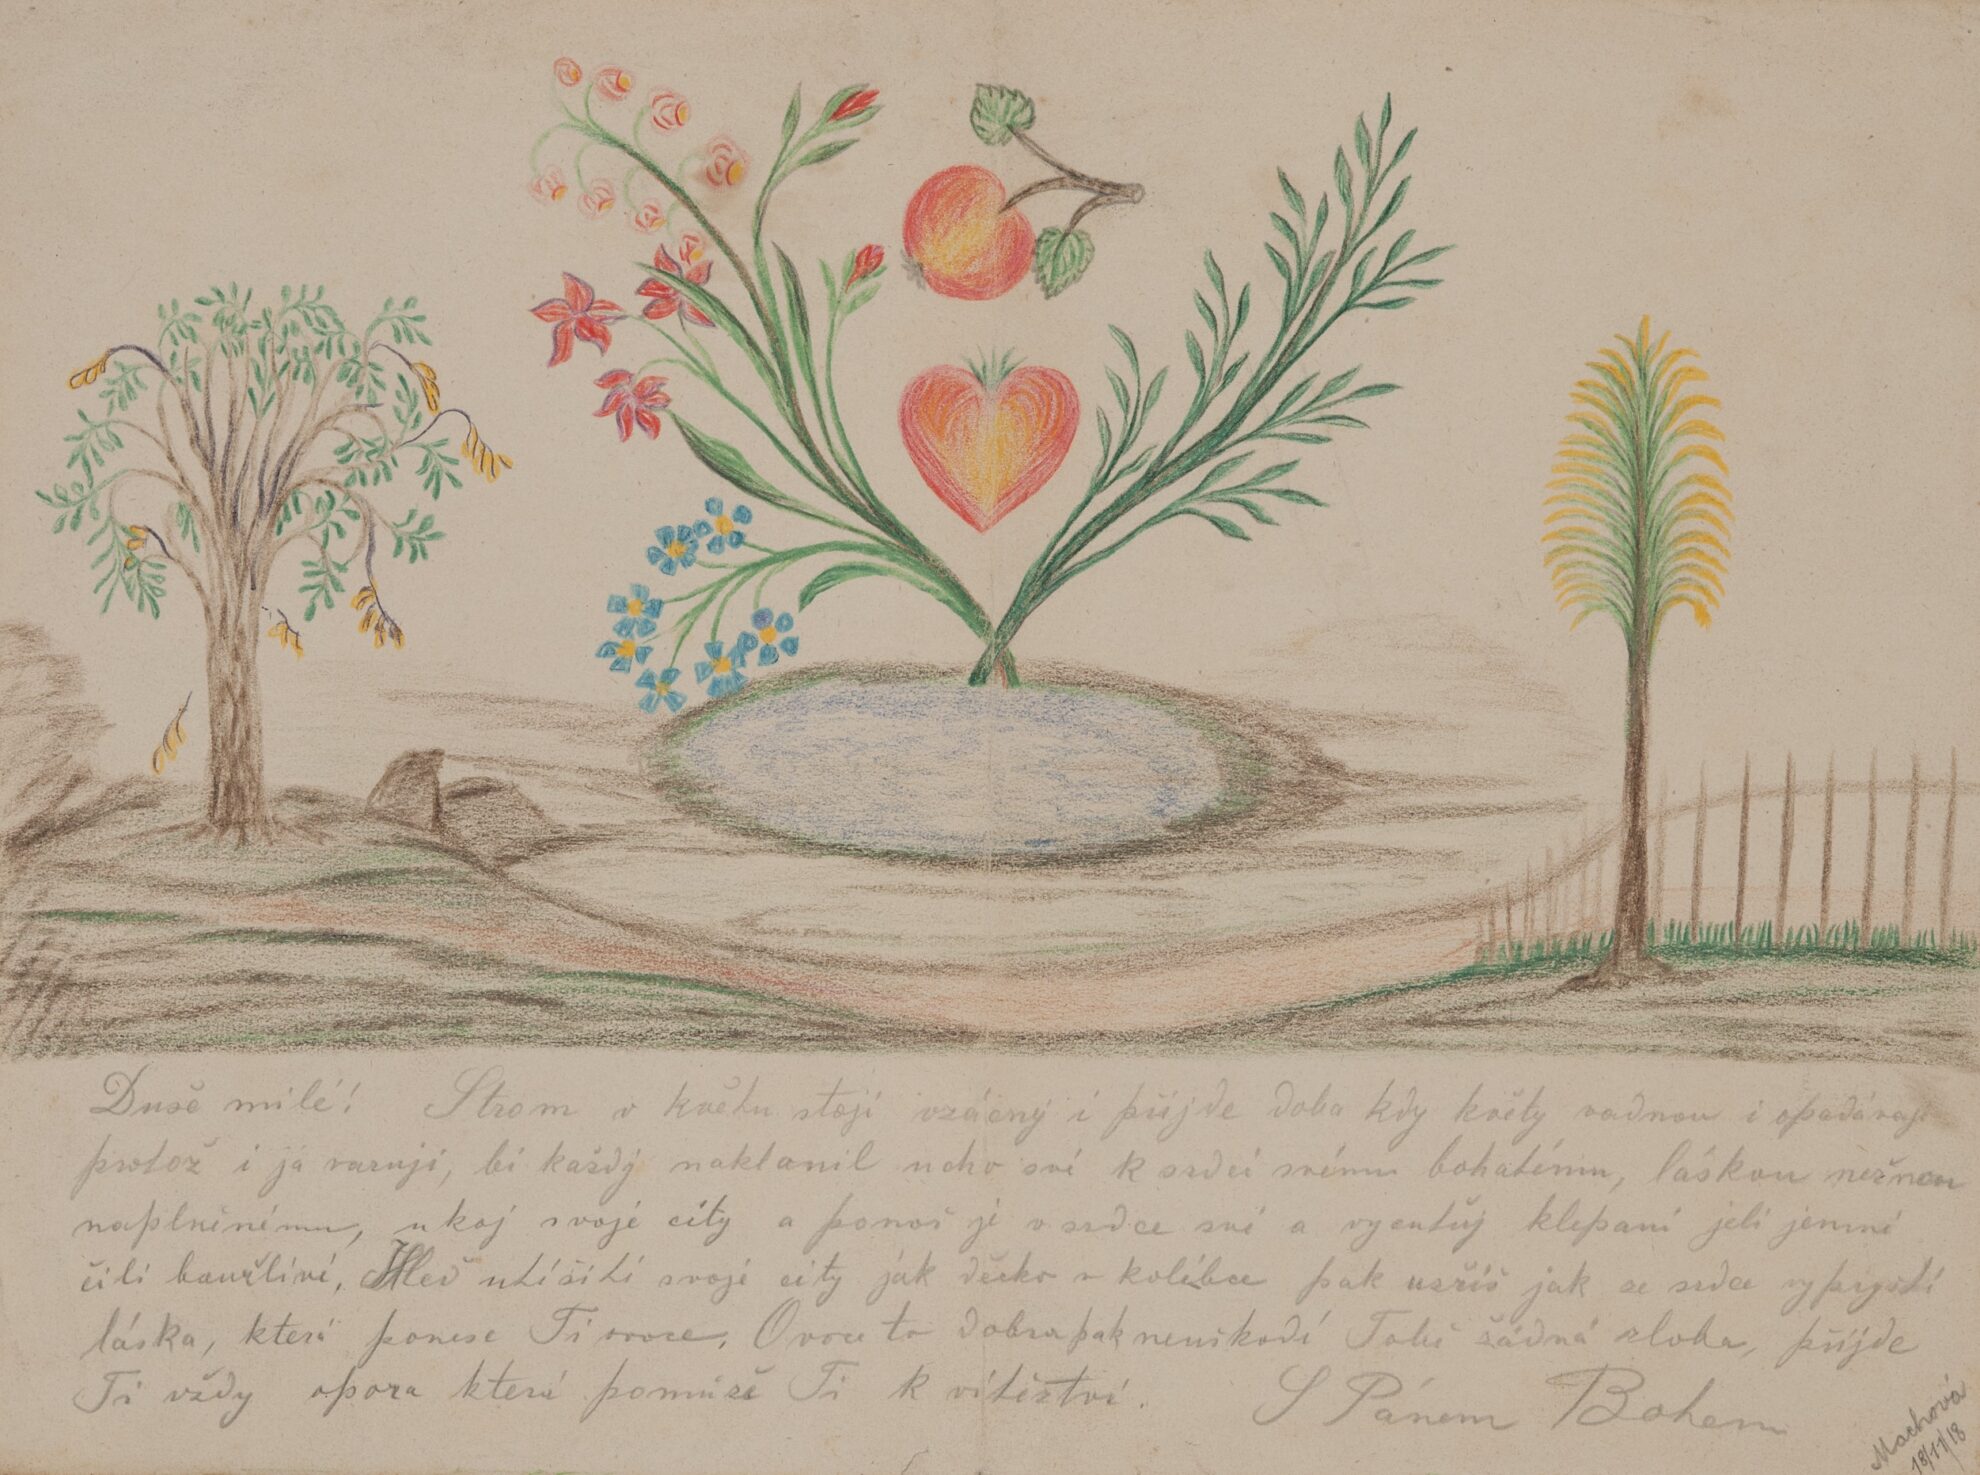 Duše milé! Strom v květu stojí vzácný i přijde doba kdy květy vadnou i opadávají
protož i já varuji, bi každý naklonil ucho své k srdci svému bohatému, láskou něžnou
naplněnému, ukoj svojé city a ponoř je v srdce své a vycituj klepaní jeli jemné
čili bouřliví, Hleď utišiti svoje city jak děcko v kolébce pak uzříš jak ze srdce vyprystí
láska, která ponese Ti ovoce, Ovoce to dobra pak neuškodí Tobě žádná zloba, přijde
Ti vždy opora která pomůže Ti k vítězství. S Pánem Bohem
Machová
18/11/18